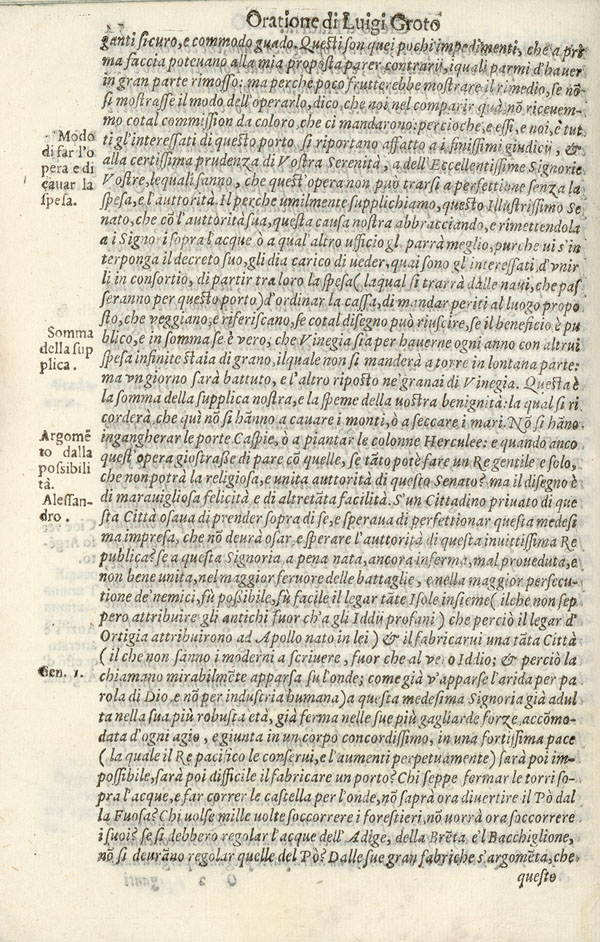 Oratione di Luigi Groto
ganti sicuro, e commodo guado. Questi son quei pochi impedimenti, che a pri
ma faccia poteuano alla mia proposta parer contrarii, iquali parmi d'hauer
in gran parte rimosso: ma perche poco frutterebbe mostrare il rimedio, se nõ
si mostrasse il modo dell'operarlo, dico, che noi nel comparir quà nõ riceuem-
mo cotal commission da coloro, che ci mandarono: percioche, e essi, e noi, è tut
ti gl'interessati di questo porto si riportano affatto a i finissimi giudicii, &
alla certissima prudenza di Vostra Serenità, a dell'Eccellentissime Signorie
Vostre, lequali sanno, che quest'opera non può trarsi a perfettione senza la
spesa, e l'auttorità. Il perche umilmente supplichiamo, questo Illustrissimo Se
nato, che cõ l'auttorità sua, questa causa nostra abbracciando, e rimettendola
a i Signori sopra l'acque ò a qual'altro ufficio gl parrà meglio, purche ui s'in
terponga il decreto suo, gli dia carico di ueder, quai sono gl'interessati d'vnir
li in consortio, di partir tra loro la spesa ( laqual si trarrà dalle naui, che paf
seranno per questo porto) d'ordinar la cassa, di mandar periti al luogo propo
sto, che veggiano, e riferiscano, se cotal disegno può riuscire, se il beneficio è pu
blico, e in somma se è vero, che Vinegia sia per hauerne ogni anno con altrui
spesa infinite staia di grano, ilquale non si manderà a torre in lontana parte:
ma vn giorno sarà battuto, e l'altro riposto ne' granai di Vinegia. Questa è
la somma della supplica nostra, e la speme della uostra benignità: la qual si ri
corderà, che quì nõ si hãnno a cauare i monti, ò a seccare i mari. Nõ si hãno
ingangherar le porte Caspie, ò a piantar le colonne Herculee: e quando anco
quest'opera giostrasse di pare cõ quelle, se tãto potè fare vn Re gentile e solo,
che non potrà la religiosa, e unita auttorità di questo Senato? ma il disegno è
di marauigliosa felicità e di altretãta facilità. S'un Cittadino priuato di que
sta Città osaua di prender sopra di se, e speraua di perfettionar questa medesi
ma impresa, che nõ deurà osar, e sperare l'auttorità di questa inuittissima Re
publica? se a questa Signoria a pena nata, ancora inferma, mal proueduta, e
non bene unita, nel maggior feruore delle battaglie, e nella maggior persecu-
tione de' nemici, fù possibile, fù facile il legar tãte Isole insieme ( ilche non sep
pero attribuire gli antichi fuor ch'a gli Iddii profani ) che perciò il legar d'
Ortigia attribuirono ad Apollo nato in lei ) & il fabricarui una tãta Città
( il che non sanno i moderni a scriuere, fuor che al vero Iddio; & perciò la
chiamano mirabilmẽte apparsa su l'onde; come già v'apparse l'arida per pa
rola di Dio e nõ per industria humana) a questa medesima Signoria già adul
ta nella sua più robusta età, già ferma nelle sue più gagliarde forze, accõmo-
data d'ogni agio, e giunta in un corpo concordissimo, in una fortissima pace
( la quale il Re pacifico le conserui, e l'aumenti perpetuamente) sarà poi im-
possibile, sarà poi difficile il fabricare un porto? Chi seppe fermar le torri so-
pra l'acque, e far correr le castella per l'onde, nõ saprà ora diuertire il Pò dal
la Fuosa? Chi uolse mille uolte soccorrere i forestieri, nõ uorrà ora soccorrere
i suoi? se si debbero regolar l'acque dell'Adige, della Brẽta e'l Bacchiglione,
nõ si deurãno regolar quelle del Pò? Dalle sue gran fabriche s'argomẽta, che
questo
Modo
di far l'o
pera e di
cauar la
spesa.
Somma
della sup
plica.
Argomẽ
to dalla
possibili
tà.
Alessan-
dro.
Gen. 1.